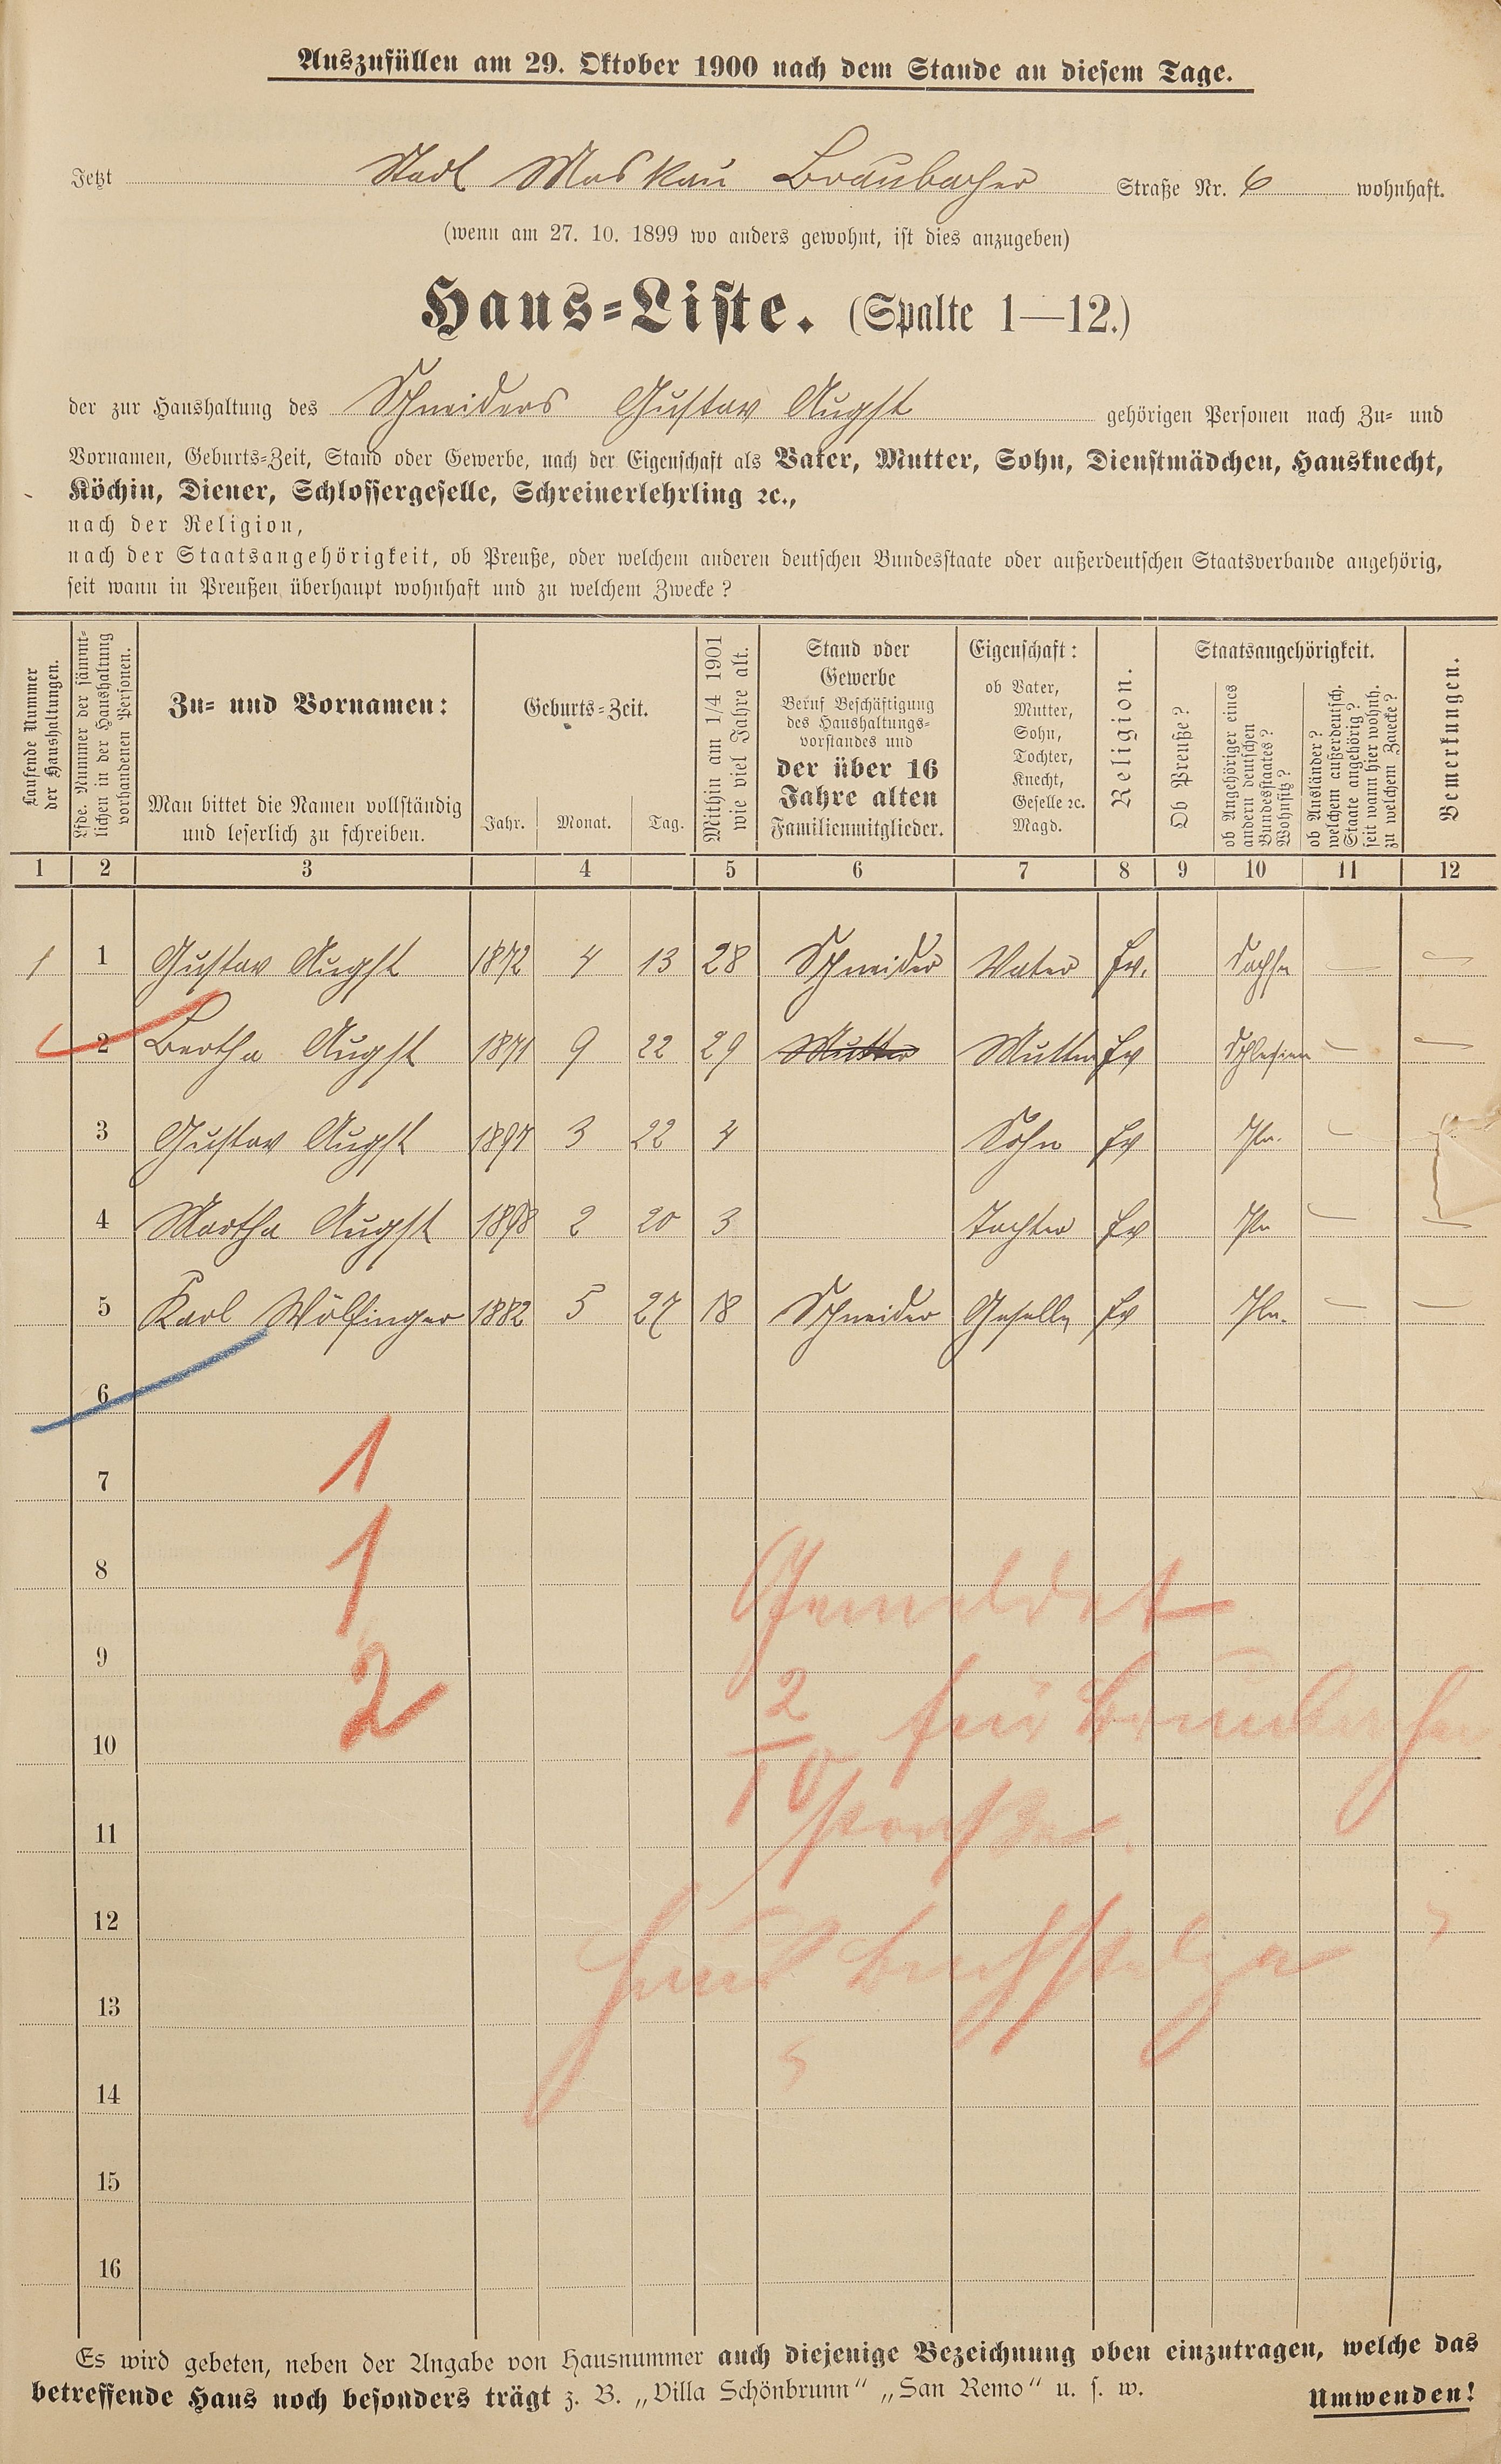 Auszufüllen am 29. Oktober 1900 nach dem Stande an diesem Tage.
Jetzt Stadt Moskau Braubacher Straße Nr. 6 wohnhaft.
(wenn am 27. 10. 1899 wo anders gewohnt, ist dies anzugeben)
Haus-Liste. (Spalte 1—12.)
der zur Haushaltung des Schneiders Gustav Augst gehörigen Personen nach Zu- und
Vornamen, Geburts-Zeit, Stand oder Gewerbe, nach der Eigenschaft als Vater, Mutter, Sohn, Dienstmädchen, Hausknecht,
Köchin, Diener, Schlossergeselle, Schreinerlehrling ꝛc.,
nach der Religion,
nach der Staatsangehörigkeit, ob Preuße, oder welchem anderen deutschen Bundesstaate oder außerdeutschen Staatsverbande angehörig,
seit wann in Preußen überhaupt wohnhaft und zu welchem Zwecke?
Laufende Nummer
der Haushaltungen.
Lfde. Nummer der sämmt-
lichen in der Haushaltung
vorhandenen Personen.
Zu- und Vornamen:
Man bittet die Namen vollständig
und leserlich zu schreiben.
Geburts-Zeit.
Jahr. Monat. Tag.
Mithin am 1/4 1901
wie viel Jahre alt.
Stand oder
Gewerbe
Beruf Beschäftigung
des Haushaltungs-
vorstandes und
der über 16
Jahre alten
Familienmitglieder.
Eigenschaft:
ob Vater,
Mutter,
Sohn,
Tochter,
Knecht,
Geselle ꝛc.
Magd.
Religion.
Staatsangehörigkeit.
Ob Preuße?
ob Angehöriger eines
andern deutschen
Bundesstaates?
Wohnsitz?
ob Ausländer?
welchem außerdeutsch.
Staate angehörig?
seit wann hier wohnh.
zu welchem Zwecke?
Bemerkungen.
1 2 3 4 5 6 7 8 9 10 11 12
1 1 Gustav Augst 1872 4 13 28 Schneider Vater Ev. Sachse — —
2 Bertha Augst 1871 9 22 29 Mutter Mutter Ev Schlesien — —
3 Gustav Augst 1897 3 22 4 Sohn Ev —
4 Martha Augst 1898 2 20 3 Tochter Ev — —
5 Karl Wölfinger 1882 5 27 18 Schneider Geselle Ev — —
6
7 1
8 1
Gemeldet
9 2
2/10 für Braubacher
10
straße.
11
12
Haus Bachstelze
13
14
15
16
Es wird gebeten, neben der Angabe von Hausnummer auch diejenige Bezeichnung oben einzutragen, welche das
betreffende Haus noch besonders trägt z. B. „Villa Schönbrunn“ „San Remo“ u. s. w. Umwenden!